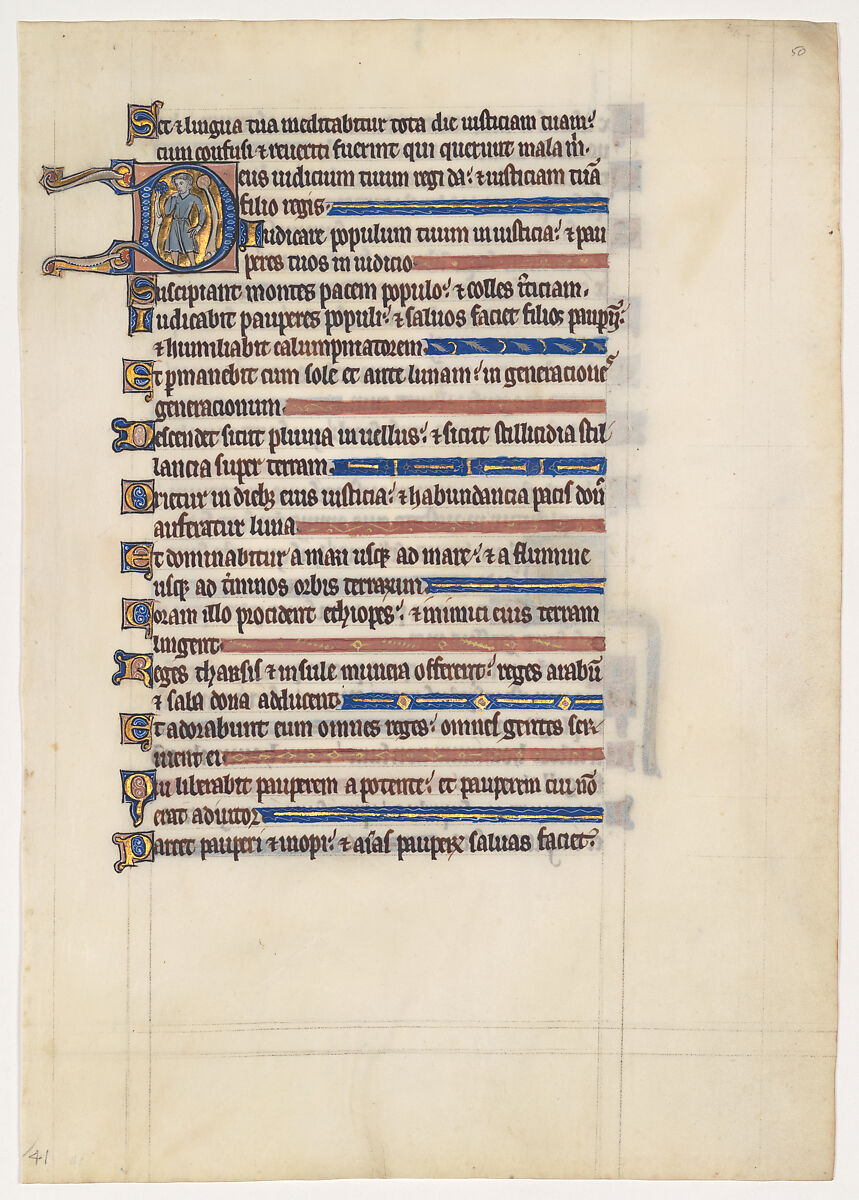 50
Set & lingua tua meditabitur tota die iusticiam tuam:
cum confusi & reueriti fuerint qui querunt mala m̄.
Deus iudicium tuum regi da: & iusticiam tuā
filio regis
Iudicare populum tuum in iusticia: & pau
peres tuos in iudicio
Suscipiant montes pacem populo: & colles iticiam.
Iudicabit pauperes populi: & saluos faciet filios paupȳ:
& humiliabit calumpniatorem
Et pmanebit cum sole et ante lunam: in generacione
generacionum
Descendet sicut pluuia in uellus: & sicut stillicidia stil
lancia super terram
Orietur in dieb; eius iusticia: & habundancia pacis don̄
auferatur luna
Et dominabitur a mari usq; ad mare: & a flumine
usq; ad t̄minos orbis terrarum
Coram illo procident ethiopes: & inimici eius terram
lingent
Reges tharsis & insule munera offerent: reges arabū
& saba dona adducent
Et adorabunt eum omnes reges: omnes gentes ser
uient ei
Qui liberabit pauperem a potente: et pauperem cui nō
erat adiutor
Parcet pauperi & inopi: & aīas pauperꝝ saluas faciet:
41